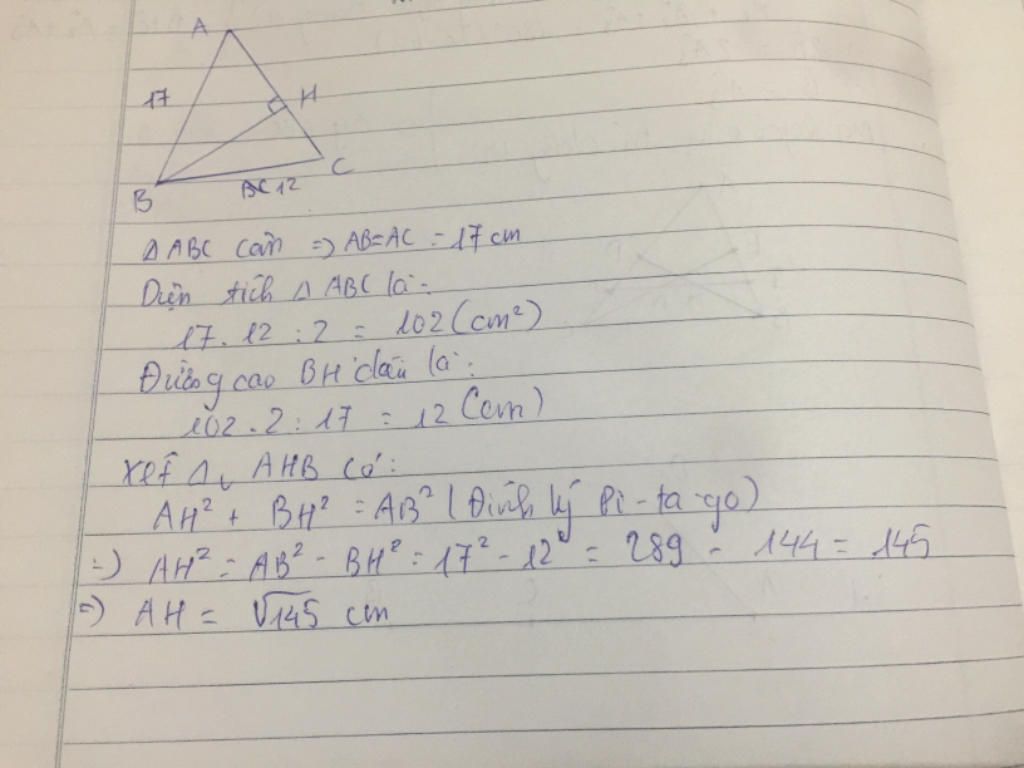 A
17
H
C
B
12
Δ ABC cân => AB=AC = 17 cm
Diện tích Δ ABC là:
17. 12 : 2 = 102 (cm²)
Đường cao BH dài là:
102. 2 : 17 = 12 (cm)
Xét Δv AHB có:
AH² + BH² = AB² (Định lý Pi-ta-go)
=) AH² = AB² - BH² = 17² - 12² = 289 - 144 = 145
=) AH = √145 cm